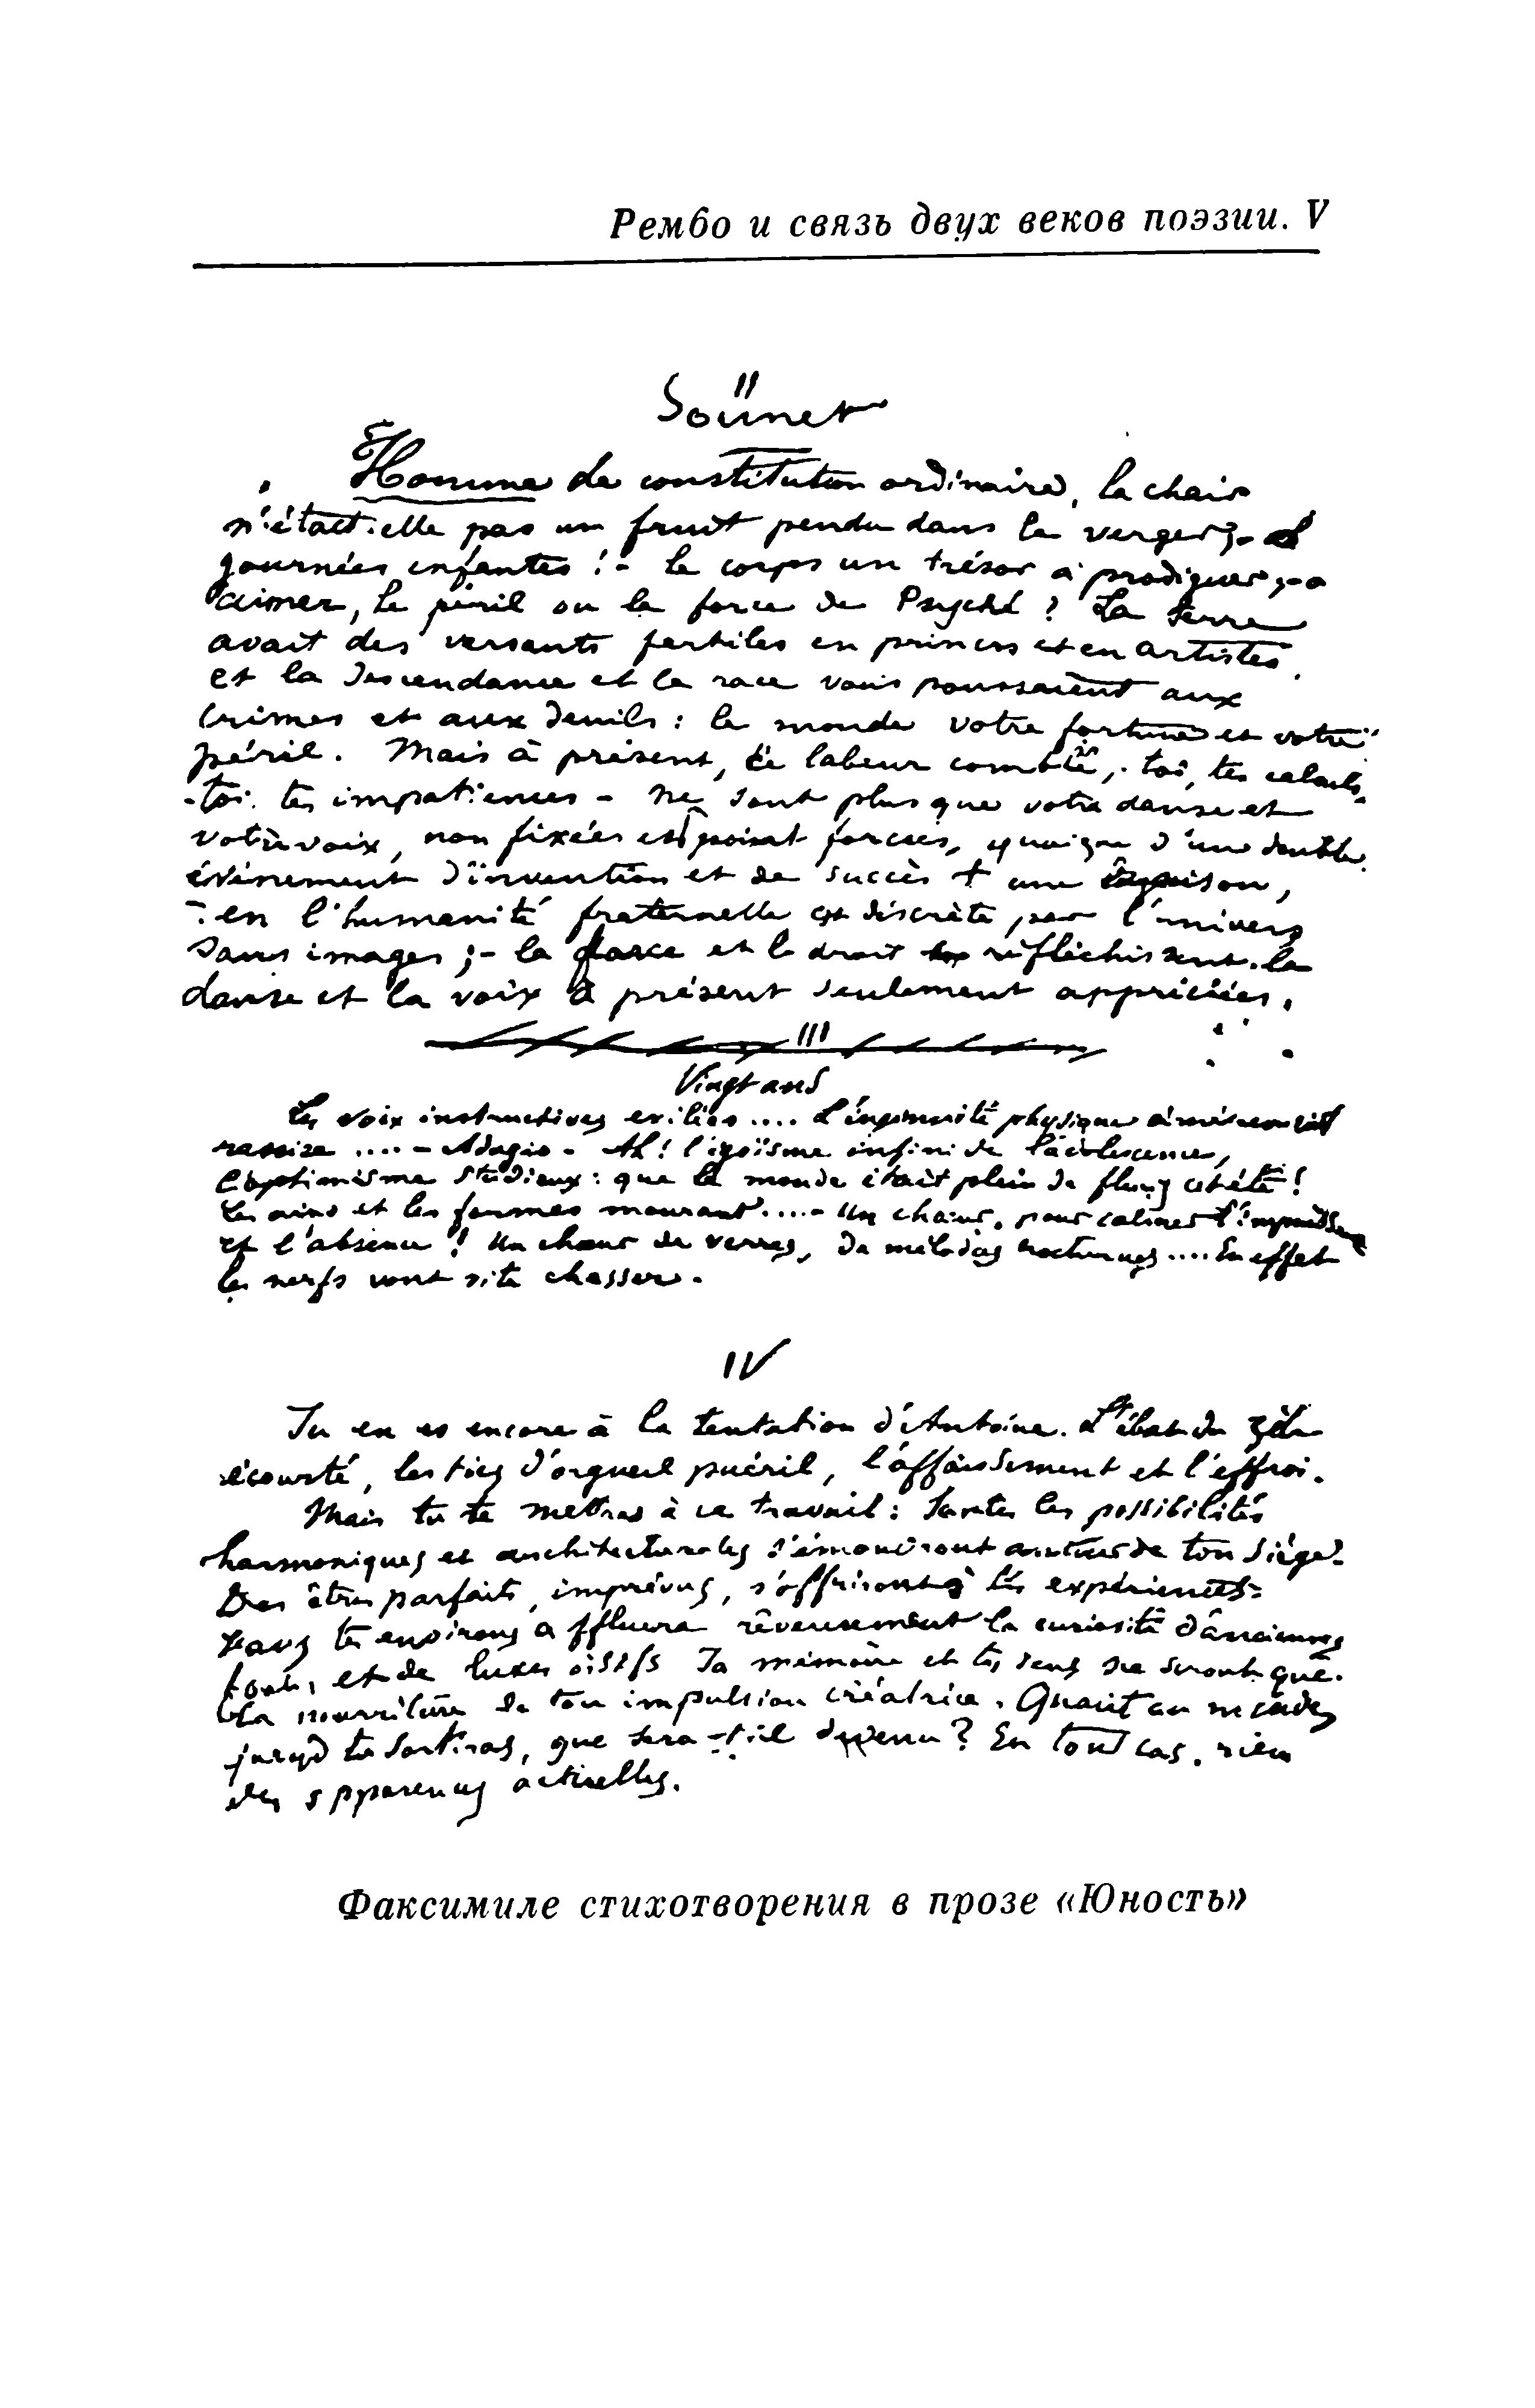 Рембо и связь двух веков поэзии. V
II
Sonnet
Homme de constitution ordinaire, la chair
n'était-elle pas un fruit pendu dans le verger; - ô
journées enfantes! - le corps un trésor à prodiguer; - ô
aimer, le péril ou la force de Psyché? La terre
avait des versants fertiles en princes et en artistes,
et la descendance et la race vous poussaient aux
crimes et aux deuils: le monde votre fortune et votre
péril. Mais à présent, ce labeur comblé, - toi, tes calculs,
- toi, tes impatiences - ne sont plus que votre danse et
votre voix, non fixées et point forcées, quoique d'un double
événement d'invention et de succès + une raison,
- en l'humanité fraternelle et discrète par l'univers
sans images; - la force et le droit réfléchissent la
danse et la voix à présent seulement appréciées.
III
Vingt ans
Les voix instructives exilées.... L'ingénuité physique amèrement
rassise.... - Adagio - Ah! l'égoïsme infini de l'adolescence,
l'optimisme studieux: que le monde était plein de fleurs cet été!
Les airs et les formes mourant.... - Un chœur, pour calmer l'impuissance
et l'absence! Un chœur de verres, de mélodies nocturnes.... En effet
les nerfs vont vite chasser.
IV
Tu en es encore à la tentation d'Antoine. L'ébat du zèle
écourté, les tics d'orgueil puéril, l'affaissement et l'effroi.
Mais tu te mettras à ce travail: toutes les possibilités
harmoniques et architecturales s'émouvront autour de ton siège.
Des êtres parfaits, imprévus, s'offriront à tes expériences.
Dans tes environs affluera rêveusement la curiosité d'anciennes
foules et de luxes oisifs. Ta mémoire et tes sens ne seront que
la nourriture de ton impulsion créatrice. Quant au monde,
quand tu sortiras, que sera-t-il devenu? En tout cas, rien
des apparences actuelles.
Факсимиле стихотворения в прозе «Юность»